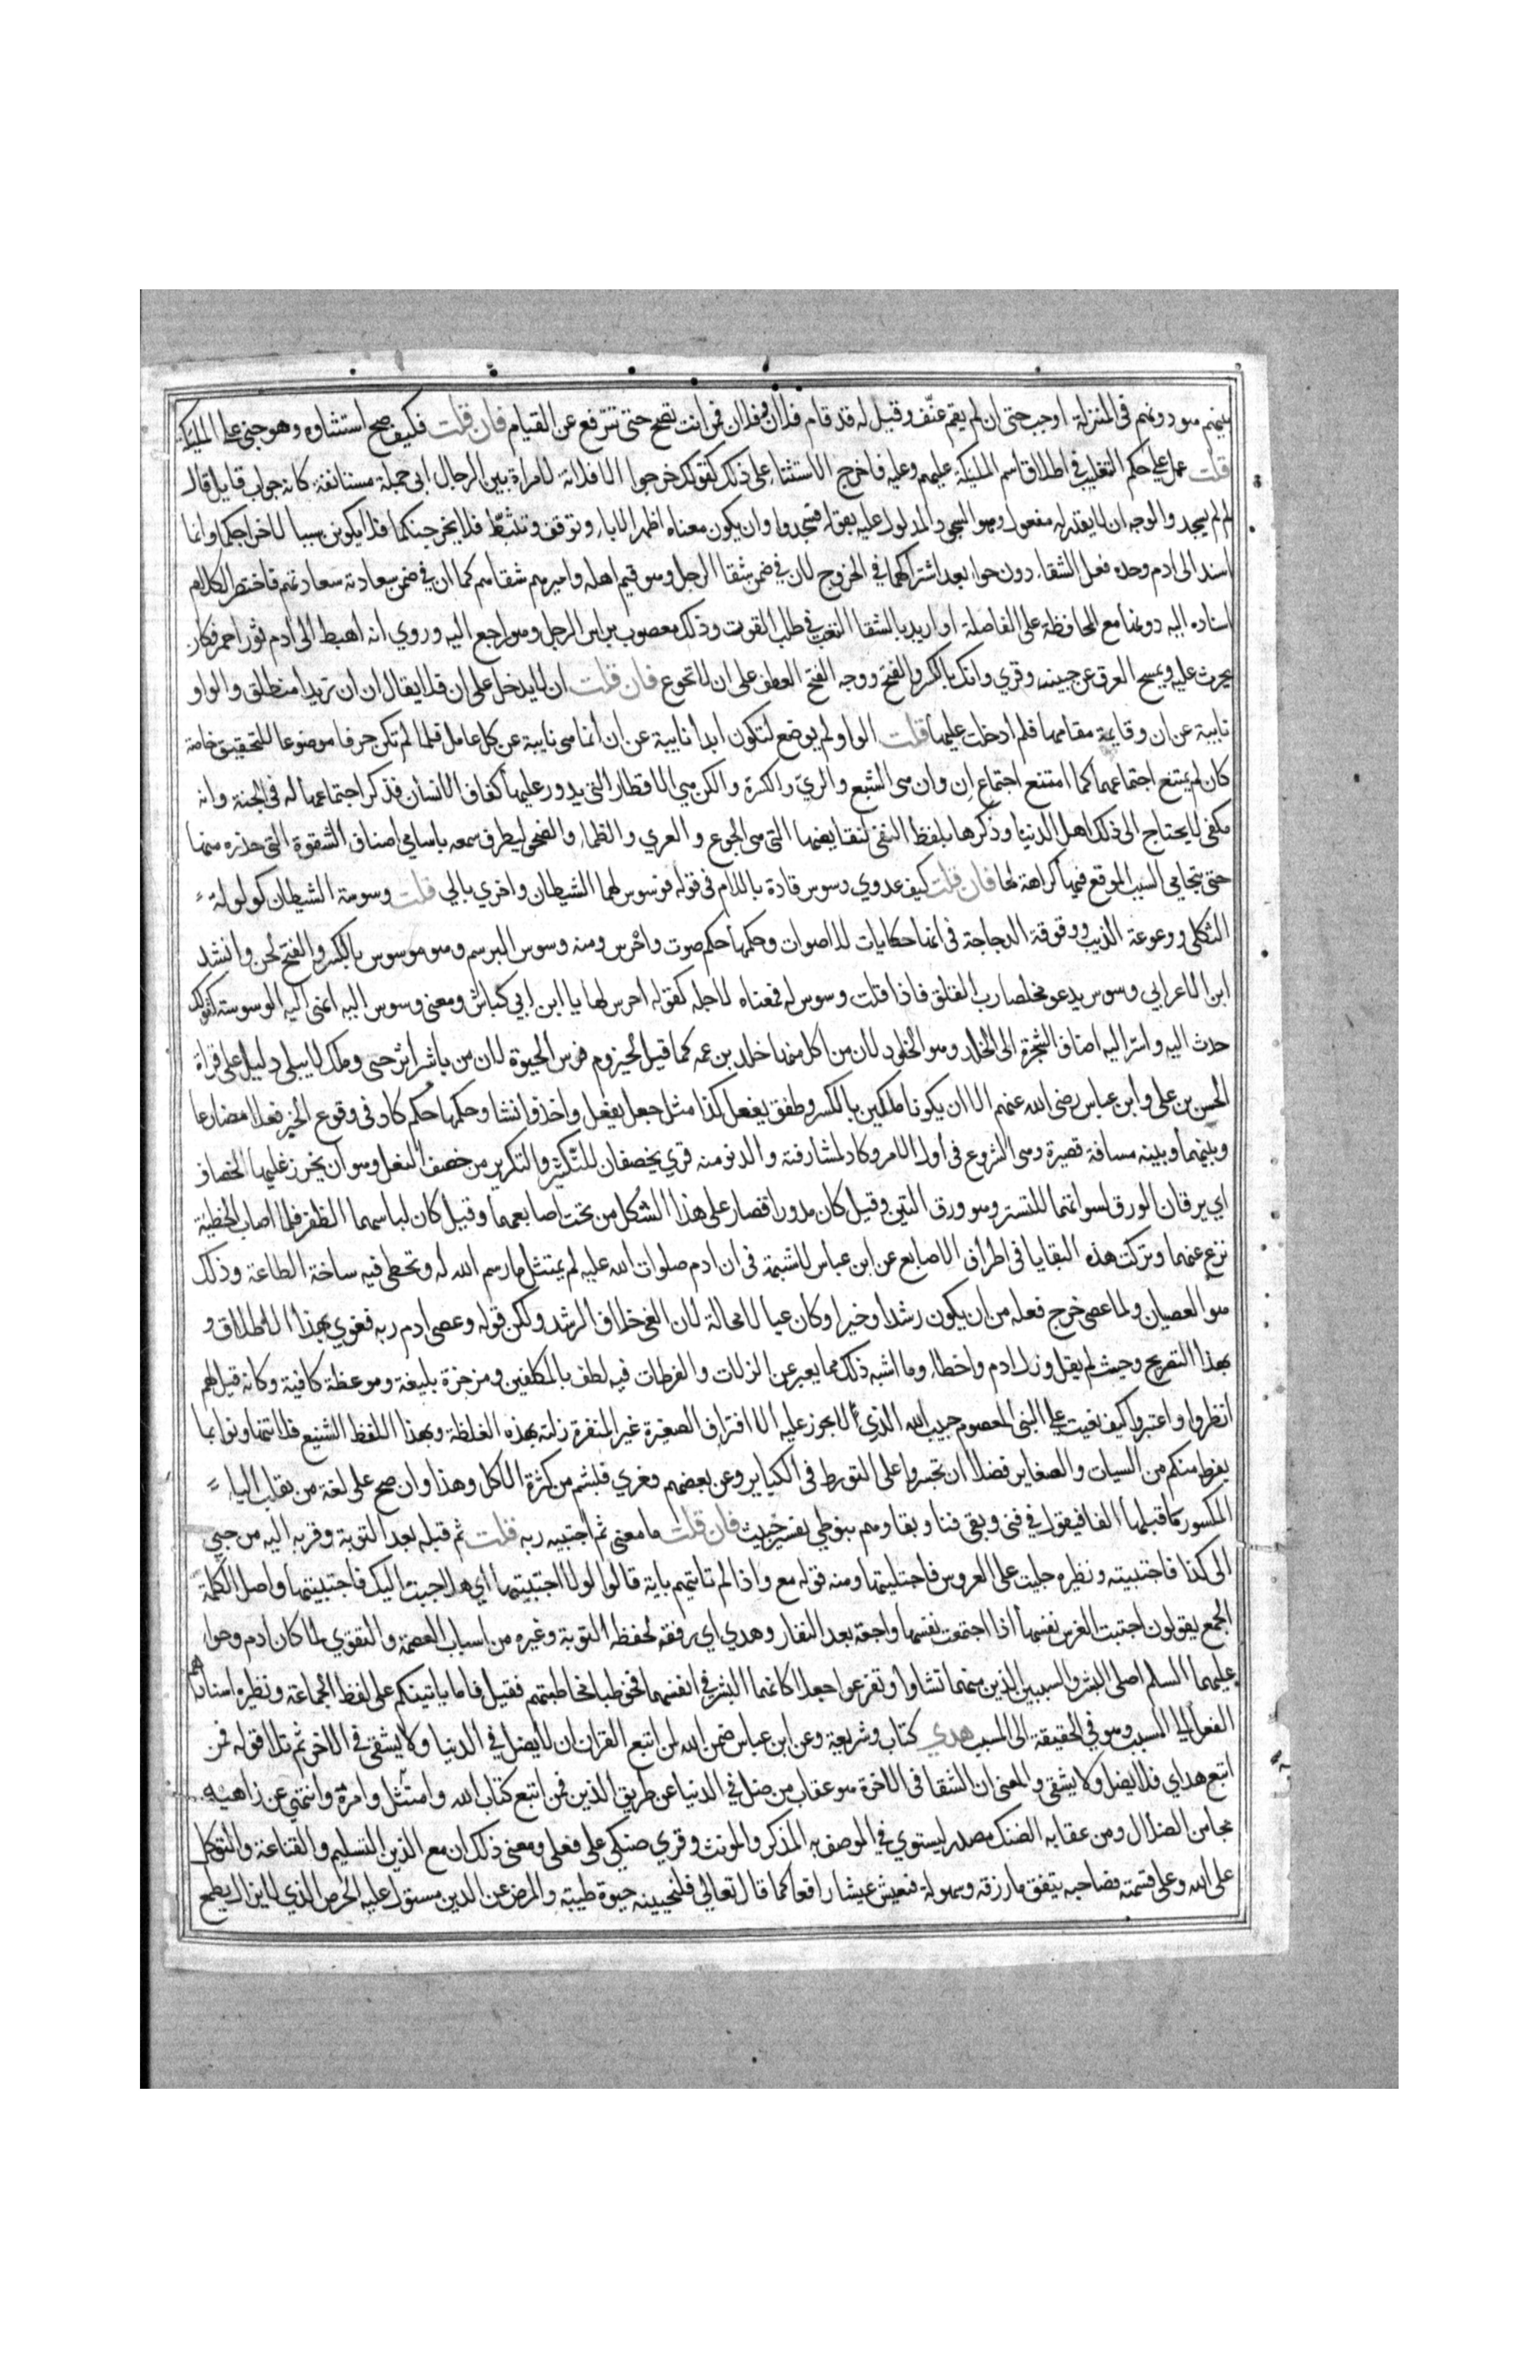 بينهم هو دونهم في المنزلة اوجب حتى ان لم يقم عنّف وقيل له قد قام فلان وفلان فمن انت تصح حتى تترفع عن القيام فان قلت فكيف صح استثناوه وهو جني على المليكة
قلت عمل على حكم التغليب في اطلاق اسم المليكة عليهم وعليه فاخرج الاستثناء على ذلك كقولك خرجوا الا فلانة لامراة بين الرجال ابى جملة مستانفة كانه جواب قايل قال
لم لم يسجد والوجه ان لا يقدر له مفعول وهو السجود المدلول عليه بقوله فسجدوا وان يكون معناه اظهر الاباء وتوقف وتثبّط فلا يخرجنكما فلا يكونن سببا لاخراجكما وانما
اسند الى ادم وحده فعل الشقاء دون حوا بعد اشتراكهما في الخروج لان في ضمن شقا الرجل وهو قيم اهله واميرهم شقاهم كما ان في ضمن سعادته سعادتهم فاختصر الكلام
اسناده اليه دونها مع المحافظة على الفاصلة او اريد بالشقا التعب في طلب القوت وذلك معصوب براس الرجل وهو راجع اليه وروي انه اهبط الى ادم ثور احمر فكان
يحرث عليه ويمسح العرق عن جبينه وقري وانك بالكسر والفتح ووجه الفتح العطف على ان لا تجوع فان قلت ان لا يدخل على ان فلا يقال ان ان تريدا منطلق والواو
نايبة عن ان وقايمة مقامها فلم ادخلت عليها قلت الواو لم يوضع لتكون ابدا نايبة عن ان انما هي نايبة عن كل عامل فلما لم تكن حرفا موضوعا للتحقيق خاصة
كان لم يمتنع اجتماعهما كما امتنع اجتماع ان وان هي الشبع والريّ والكسرة والكن هي الاقطار التي يدور عليها كفاف الانسان فذكر اجتماعها له في الجنة وانه
مكفى لا يحتاج الى ذلك اهل الدنيا وذكرها بلفظ النفي لنقايضها التي هي الجوع والعري والظماء والضحى ليطرق سمعه باسامي اصناف الشقوة التي حذره منها
حتى يتحامى السبب الموقع فيها كراهة لها فان قلت كيف عدوي وسوس قادة باللام في قوله فوسوس لهما الشيطان واخري بالي قلت وسوسة الشيطان كولولة
الثكلى ووعوعة الذيب ووقوقة الدجاجة في انها حكايات للاصوات وحكمها حكم صوت واجرس ومنه وسوس المبرسم وهو موسوس بالكسر والفتح لحن وانشد
ابن الاعرابي وسوس يدعو مخلصا رب الفلق فاذا قلت وسوس له فمعناه لاجله كقوله اجرس لها يا ابن ابي كباش ومعنى وسوس اليه انهى اليه الوسوسة كقولك
حدث اليه واسرّ اليه اضاف الشجرة الى الخلد وهو الخلود لان من اكل منها خلد بزعمه كما قيل لحيزوم فرس الحيوة لان من باشر اثره حيي وملك لا يبلى دليل على قراة
الحسن بن على وابن عباس رضي الله عنهم الا ان يكونا ملكين بالكسر وطفق يفعل كذا مثل جعل يفعل واخذ وانشا وحكمها حكم كاد في وقوع الخبر فعلا مضارعا
وبينها وبينه مسافة قصيرة وهي الشروع في اول الامر وكاد لمشارفته والدنو منه قري يخصفان للتكثير والتكرير من خصف النعل وهو ان يخرز عليها الخصاف
اي يرقان الورق لسواتهما للتستر وهو ورق التين وقيل كان مدورا فصار على هذا الشكل من تحت اصابعهما وقيل كان لباسهما الظفر فلما اصاب الخطية
نزع عنهما وتركت هذه البقايا في اطراف الاصابع عن ابن عباس لا شبهة في ان ادم صلوات الله عليه لم يمتثل ما رسم الله له وتخطى فيه ساحة الطاعة وذلك
هو العصيان ولما عصى خرج فعله من ان يكون رشدا وخيرا وكان غيا لا محالة لان الغي خلاف الرشد ولكن قوله وعصى ادم ربه فغوى بهذا الاطلاق و
بهذا التصريح وحيث لم يقل وزل ادم واخطاء وما اشبه ذلك مما يعبر عن الزلات والفرطات فيه لطف بالمكلفين ومزجرة بليغة وموعظة كافية وكانه قيل لهم
انظروا واعتبروا كيف نعيت على النبي المعصوم حبيب الله الذي لا يجوز عليه الا اقتراف الصغيرة غير المنفرة زلته بهذه الغلظة وبهذا اللفظ الشنيع فلا تتهاونوا بما
يفرط منكم من السيات والصغاير فضلا ان تجسروا على التورط في الكباير وعن بعضهم فغوي فبشم من كثرة الاكل وهذا وان صح على لغة من يقلب الياء
المكسور ما قبلها الفا فيقول في فني وبقي فنا وبقا وهم بنو طي تفسير خبيث فان قلت ما معنى ثم اجتبيه ربه قلت ثم قبله بعد التوبة وقربه اليه من جبي
الى كذا فاجتبيته ونظيره جليت على العروس فاجتليتها ومنه قوله مع واذا لم تاتيهم باية قالوا لولا اجتبيتها اي هلا جبيت اليك فاجتبيتها واصل الكلمة
الجمع يقولون اجتبت الفرس نفسها اذا اجتمعت نفسها راجعة بعد النفار وهدي اي رفقه لحفظ التوبة وغيره من اسباب العصمة والتقوي لما كان ادم وحوا
عليهما السلم اصلى البشر والسببين الذين منهما نشاوا وتفرعوا جعلا كانهما البشر في انفسهما فخوطبا مخاطبتهم فقيل فاما ياتينكم على لفظ الجماعة ونظيره اسنادهم
الفعل الى السبب وهو في الحقيقة الى المسبب هدي كتاب وشريعة وعن ابن عباس ضمن الله لمن اتبع القران ان لا يضل في الدنيا ولا يشقى في الاخرة ثم تلا قوله فمن
اتبع هداي فلا يضل ولا يشقى والمعنى ان الشقا في الاخرة هو عقاب من ضل في الدنيا عن طريق الذين فمن اتبع كتاب الله وامتثل وامره وانتهي عن زاهيه
نجا من الضلال ومن عقابه الضنك مصدر يستوي في الوصف به المذكر والمونث وقري ضنكى على فعلى ومعنى ذلك ان مع الدين التسليم والقناعة والتوكل
على الله وعلى قسمته فصاحبه ينفق ما رزقه وسهولة فيعيش عيشا رافعا كما قال تعالى فلنحيينه حيوة طيبة والمرض عن الدين مستول عليه الحرص الذي لا يزال يطمح